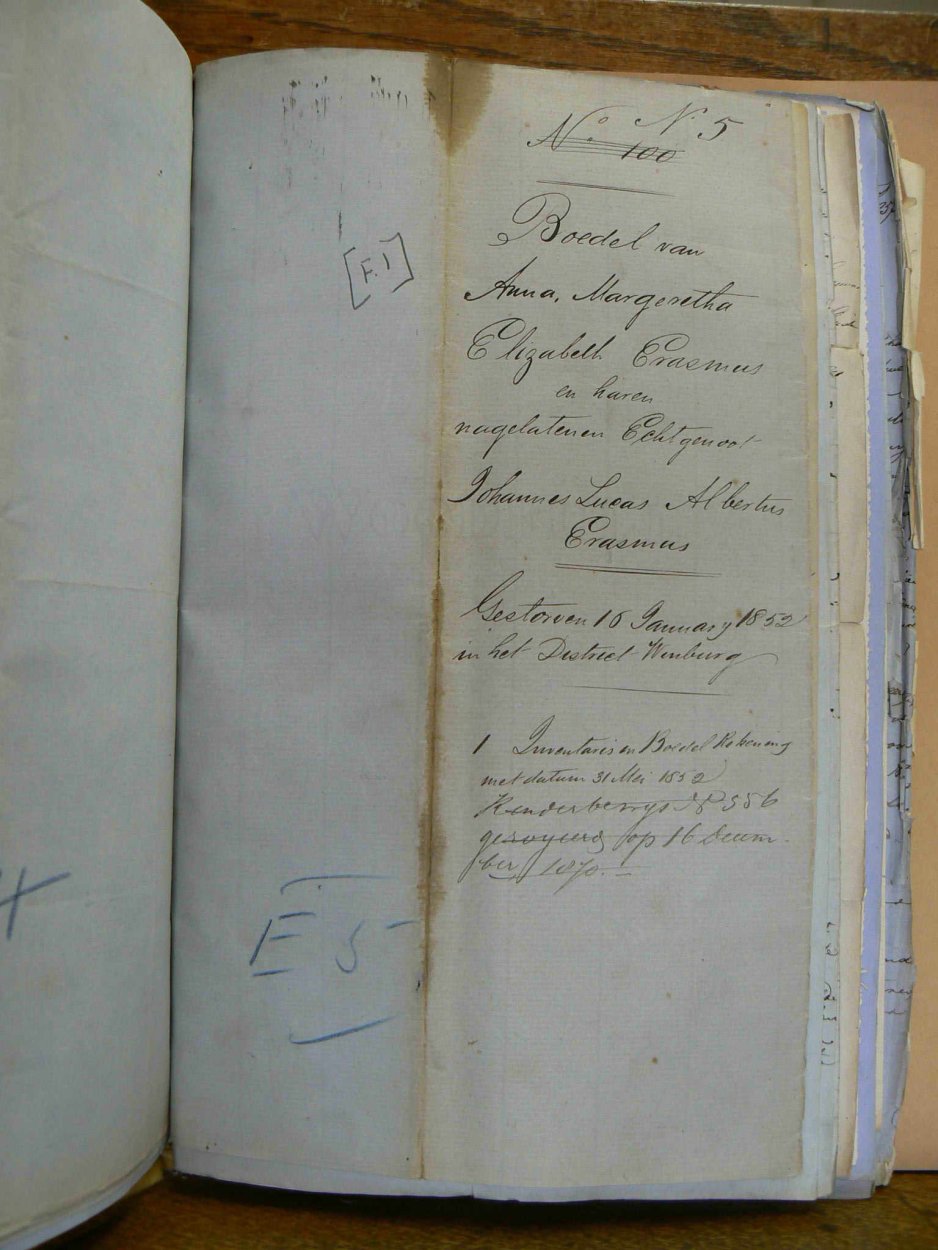 No. 5
No. 100
[F.1]
Boedel van
Anna, Margeretha
Elizabeth Erasmus
en haren
nagelatenen Echtgenoot
Johannes Lucas Albertus
Erasmus
Gestorven 16 January 1852
in het District Winburg
1 Inventaris en Boedel Rekening
met datum 31 Mei 1852
Kinderbewys
geroyeerd op 16 Decem-
ber 1870.
E 5